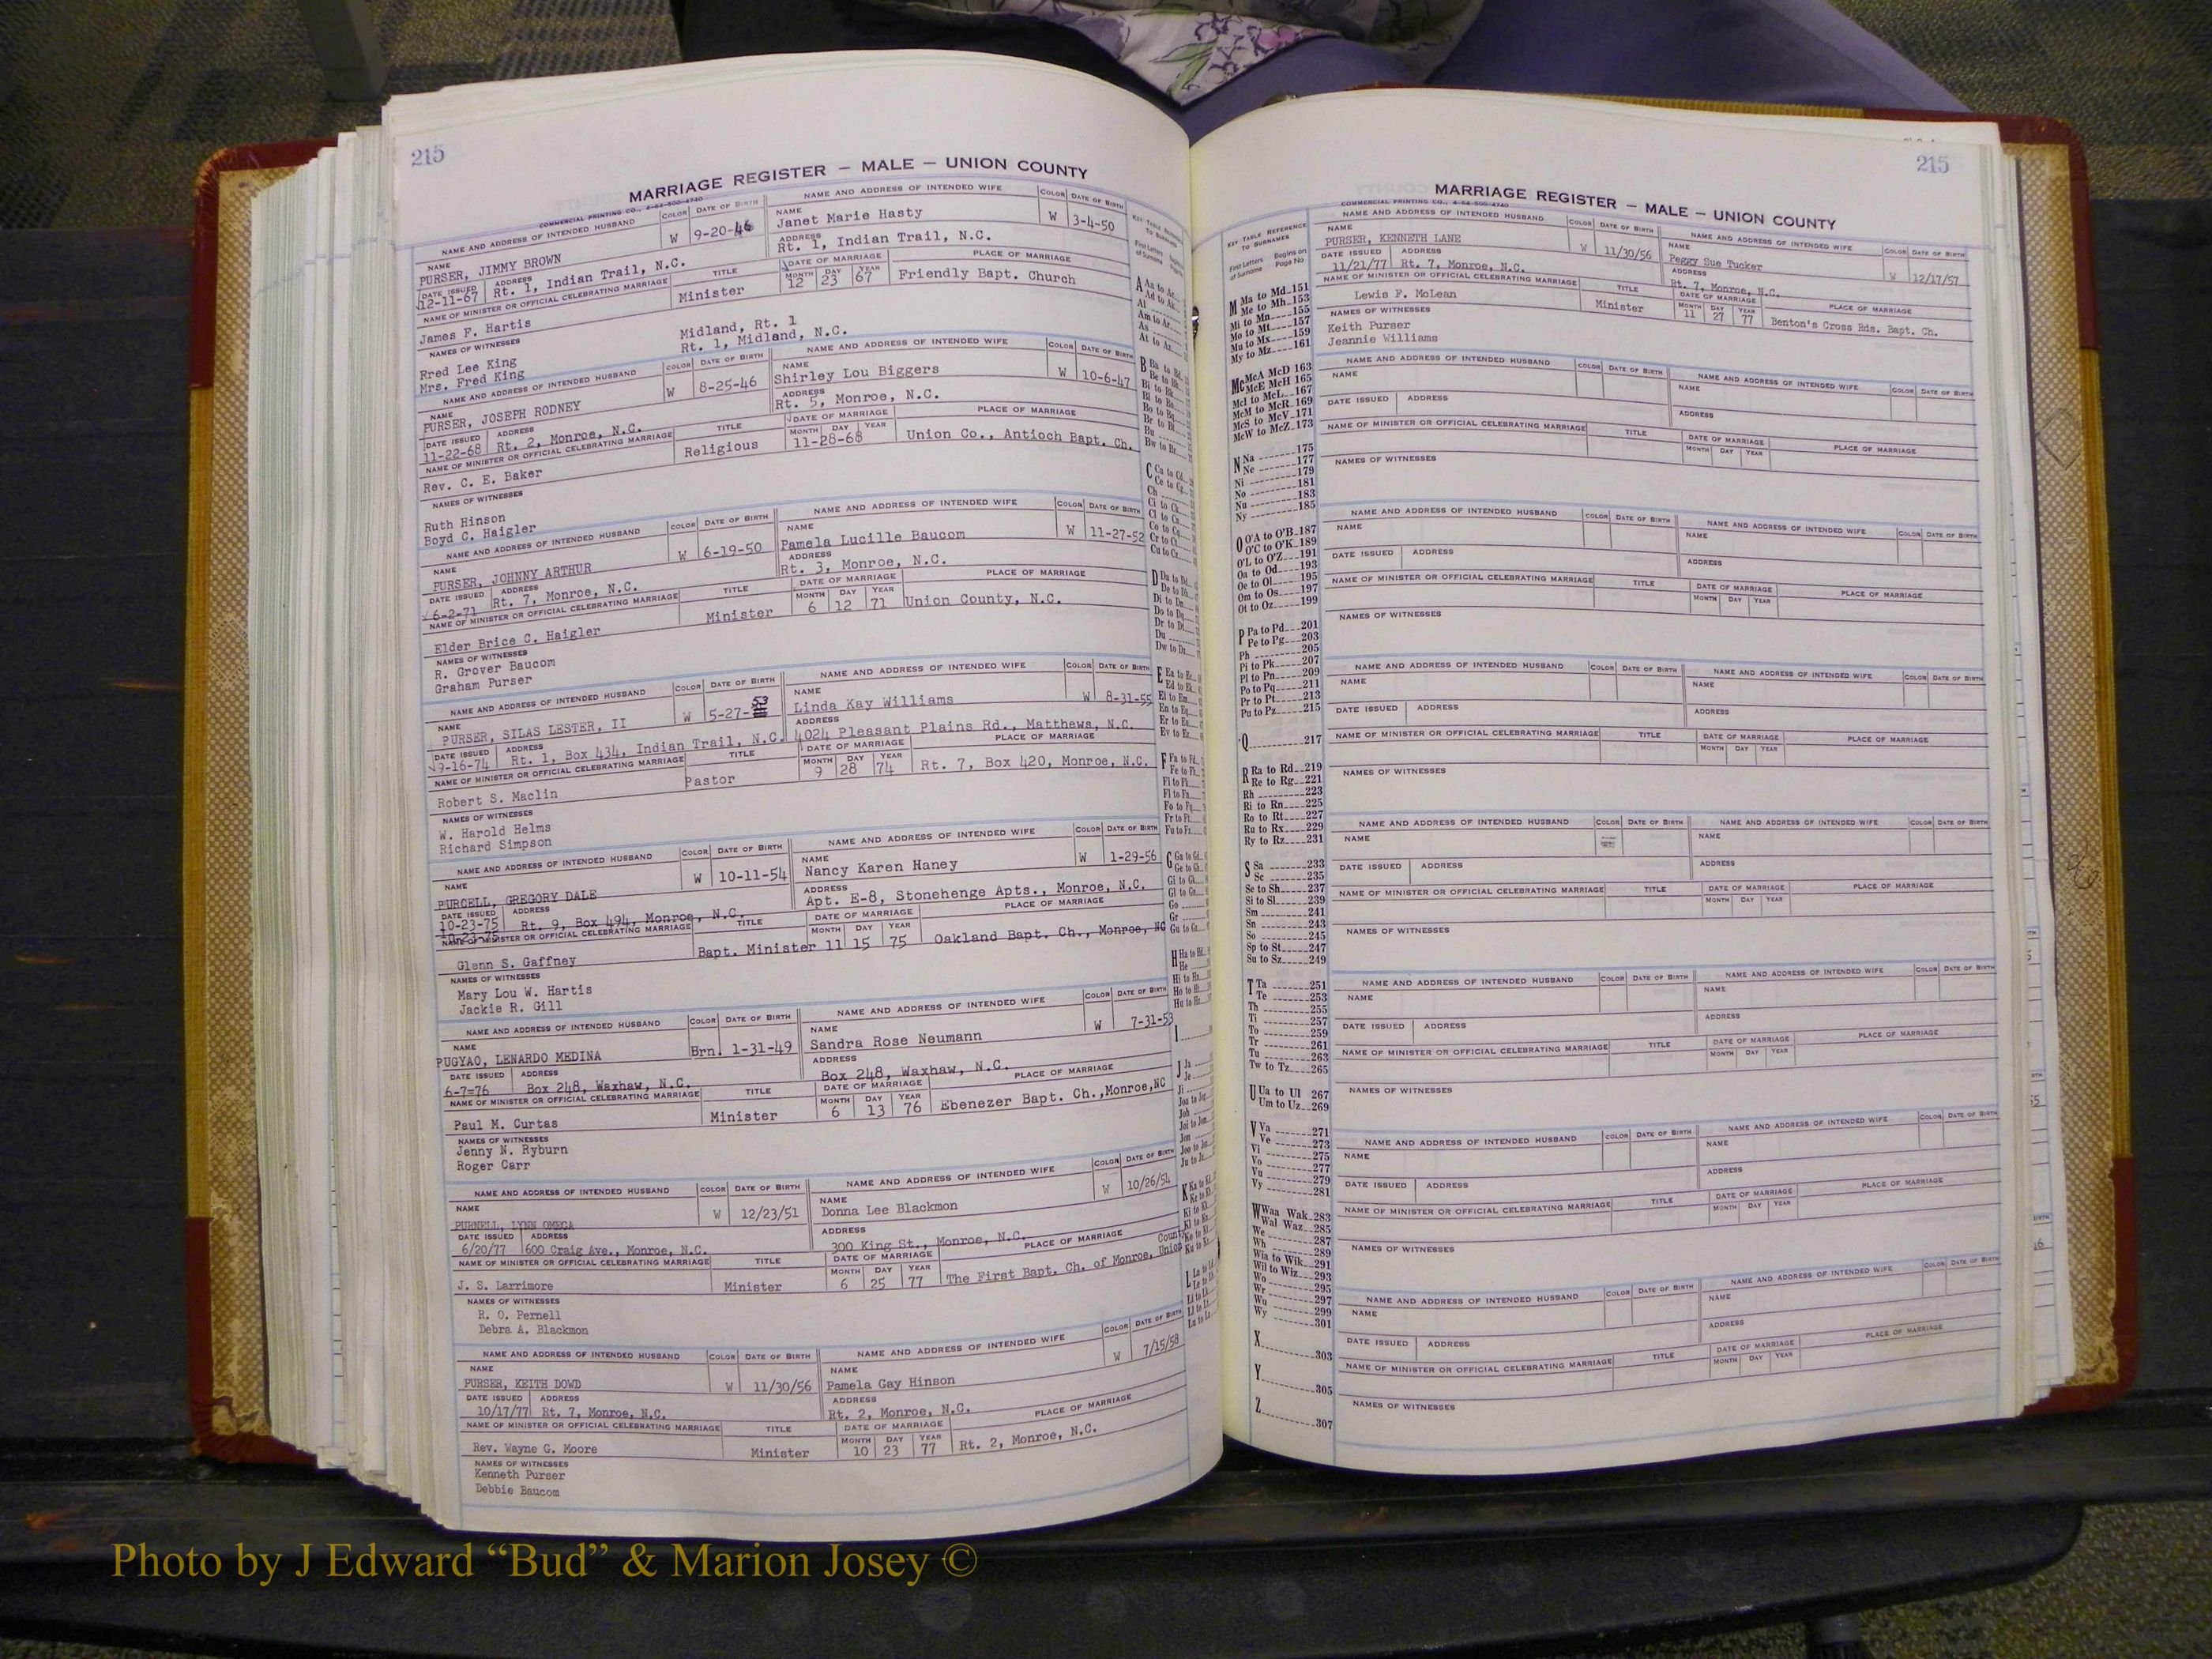 215
MARRIAGE REGISTER — MALE — UNION COUNTY
COMMERCIAL PRINTING CO.,
NAME AND ADDRESS OF INTENDED HUSBAND COLOR DATE OF BIRTH NAME AND ADDRESS OF INTENDED WIFE COLOR DATE OF BIRTH
NAME PURSER, JIMMY BROWN W 9-20-46 NAME Janet Marie Hasty W 3-4-50
DATE ISSUED 12-11-67 ADDRESS Rt. 1, Indian Trail, N.C. ADDRESS Rt. 1, Indian Trail, N.C.
NAME OF MINISTER OR OFFICIAL CELEBRATING MARRIAGE TITLE DATE OF MARRIAGE PLACE OF MARRIAGE
James F. Hartis Minister MONTH 12 DAY 23 YEAR 67 Friendly Bapt. Church
NAMES OF WITNESSES
Rred Lee King Midland, Rt. 1
Mrs. Fred King Rt. 1, Midland, N.C.
NAME AND ADDRESS OF INTENDED HUSBAND COLOR DATE OF BIRTH NAME AND ADDRESS OF INTENDED WIFE COLOR DATE OF BIRTH
NAME PURSER, JOSEPH RODNEY W 8-25-46 Shirley Lou Biggers W 10-6-47
DATE ISSUED 11-22-68 ADDRESS Rt. 2, Monroe, N.C. ADDRESS Rt. 5, Monroe, N.C.
NAME OF MINISTER OR OFFICIAL CELEBRATING MARRIAGE TITLE DATE OF MARRIAGE PLACE OF MARRIAGE
Rev. C. E. Baker Religious MONTH DAY YEAR 11-28-68 Union Co., Antioch Bapt. Ch.
NAMES OF WITNESSES
Ruth Hinson
Boyd C. Haigler
NAME AND ADDRESS OF INTENDED HUSBAND COLOR DATE OF BIRTH NAME AND ADDRESS OF INTENDED WIFE COLOR DATE OF BIRTH
NAME PURSER, JOHNNY ARTHUR W 6-19-50 NAME Pamela Lucille Baucom W 11-27-52
DATE ISSUED 6-2-71 ADDRESS Rt. 7, Monroe, N.C. ADDRESS Rt. 3, Monroe, N.C.
NAME OF MINISTER OR OFFICIAL CELEBRATING MARRIAGE TITLE DATE OF MARRIAGE PLACE OF MARRIAGE
Elder Brice C. Haigler Minister MONTH 6 DAY 12 YEAR 71 Union County, N.C.
NAMES OF WITNESSES
R. Grover Baucom
Graham Purser
NAME AND ADDRESS OF INTENDED HUSBAND COLOR DATE OF BIRTH NAME AND ADDRESS OF INTENDED WIFE COLOR DATE OF BIRTH
NAME PURSER, SILAS LESTER, II W 5-27-53 NAME Linda Kay Williams W 8-31-55
DATE ISSUED 9-16-74 ADDRESS Rt. 1, Box 434, Indian Trail, N.C. ADDRESS 4024 Pleasant Plains Rd., Matthews, N.C.
NAME OF MINISTER OR OFFICIAL CELEBRATING MARRIAGE TITLE DATE OF MARRIAGE PLACE OF MARRIAGE
Robert S. Maclin Pastor MONTH 9 DAY 28 YEAR 74 Rt. 7, Box 420, Monroe, N.C.
NAMES OF WITNESSES
W. Harold Helms
Richard Simpson
NAME AND ADDRESS OF INTENDED HUSBAND COLOR DATE OF BIRTH NAME AND ADDRESS OF INTENDED WIFE COLOR DATE OF BIRTH
NAME PURCELL, GREGORY DALE W 10-11-54 NAME Nancy Karen Haney W 1-29-56
DATE ISSUED 10-23-75 ADDRESS Rt. 9, Box 494, Monroe, N.C. ADDRESS Apt. E-8, Stonehenge Apts., Monroe, N.C.
10-23-75
NAME OF MINISTER OR OFFICIAL CELEBRATING MARRIAGE TITLE DATE OF MARRIAGE PLACE OF MARRIAGE
Glenn S. Gaffney Bapt. Minister MONTH 11 DAY 15 YEAR 75 Oakland Bapt. Ch., Monroe, NC
NAMES OF WITNESSES
Mary Lou W. Hartis
Jackie R. Gill
NAME AND ADDRESS OF INTENDED HUSBAND COLOR DATE OF BIRTH NAME AND ADDRESS OF INTENDED WIFE COLOR DATE OF BIRTH
NAME PUGYAO, LENARDO MEDINA Brn. 1-31-49 NAME Sandra Rose Neumann W 7-31-53
DATE ISSUED 6-7=76 ADDRESS Box 248, Waxhaw, N.C. ADDRESS Box 248, Waxhaw, N.C.
NAME OF MINISTER OR OFFICIAL CELEBRATING MARRIAGE TITLE DATE OF MARRIAGE PLACE OF MARRIAGE
Paul M. Curtas Minister MONTH 6 DAY 13 YEAR 76 Ebenezer Bapt. Ch.,Monroe,NC
NAMES OF WITNESSES
Jenny N. Ryburn
Roger Carr
NAME AND ADDRESS OF INTENDED HUSBAND COLOR DATE OF BIRTH NAME AND ADDRESS OF INTENDED WIFE COLOR DATE OF BIRTH
NAME PURNELL, LYNN OMEGA W 12/23/51 NAME Donna Lee Blackmon W 10/26/54
DATE ISSUED 6/20/77 ADDRESS 600 Craig Ave., Monroe, N.C. ADDRESS 300 King St., Monroe, N.C.
NAME OF MINISTER OR OFFICIAL CELEBRATING MARRIAGE TITLE DATE OF MARRIAGE PLACE OF MARRIAGE
J. S. Larrimore Minister MONTH 6 DAY 25 YEAR 77 The First Bapt. Ch. of Monroe, Union County
NAMES OF WITNESSES
R. O. Pernell
Debra A. Blackmon
NAME AND ADDRESS OF INTENDED HUSBAND COLOR DATE OF BIRTH NAME AND ADDRESS OF INTENDED WIFE COLOR DATE OF BIRTH
NAME PURSER, KEITH DOWD W 11/30/56 NAME Pamela Gay Hinson W 7/15/58
DATE ISSUED 10/17/77 ADDRESS Rt. 7, Monroe, N.C. ADDRESS Rt. 2, Monroe, N.C.
NAME OF MINISTER OR OFFICIAL CELEBRATING MARRIAGE TITLE DATE OF MARRIAGE PLACE OF MARRIAGE
Rev. Wayne G. Moore Minister MONTH 10 DAY 23 YEAR 77 Rt. 2, Monroe, N.C.
NAMES OF WITNESSES
Kenneth Purser
Debbie Baucom
215
MARRIAGE REGISTER — MALE — UNION COUNTY
COMMERCIAL PRINTING CO.,
KEY TABLE REFERENCE TO SURNAMES
First Letters of Surname Begins on Page No
M Ma to Md 151
Me to Mh 153
Mi to Mn 155
Mo to Mt 157
Mu to Mx 159
My to Mz 161
Mc McA McD 163
McE McH 165
McI to McL 167
McM to McR 169
McS to McV 171
McW to McZ 173
N Na 175
Ne 177
Ni 179
No 181
Nu 183
Ny 185
O O'A to O'B 187
O'C to O'K 189
O'L to O'Z 191
Oa to Od 193
Oe to Ol 195
Om to Os 197
Ot to Oz 199
P Pa to Pd 201
Pe to Pg 203
Ph 205
Pi to Pk 207
Pl to Pn 209
Po to Pq 211
Pr to Pt 213
Pu to Pz 215
Q 217
R Ra to Rd 219
Re to Rg 221
Rh 223
Ri to Rn 225
Ro to Rt 227
Ru to Rx 229
Ry to Rz 231
S Sa 233
Sc 235
Se to Sh 237
Si to Sl 239
Sm 241
Sn 243
So 245
Sp to St 247
Su to Sz 249
T Ta 251
Te 253
Th 255
Ti 257
To 259
Tr 261
Tu 263
Tw to Tz 265
U Ua to Ul 267
Um to Uz 269
V Va 271
Ve 273
Vi 275
Vo 277
Vu 279
Vy 281
W Waa Wak 283
Wal Waz 285
We 287
Wh 289
Wia to Wik 291
Wil to Wiz 293
Wo 295
Wr 297
Wu 299
Wy 301
X 303
Y 305
Z 307
NAME AND ADDRESS OF INTENDED HUSBAND COLOR DATE OF BIRTH NAME AND ADDRESS OF INTENDED WIFE COLOR DATE OF BIRTH
NAME PURSER, KENNETH LANE W 11/30/56 NAME Peggy Sue Tucker W 12/17/57
DATE ISSUED 11/21/77 ADDRESS Rt. 7, Monroe, N.C. ADDRESS Rt. 7, Monroe, N.C.
NAME OF MINISTER OR OFFICIAL CELEBRATING MARRIAGE TITLE DATE OF MARRIAGE PLACE OF MARRIAGE
Lewis F. McLean Minister MONTH 11 DAY 27 YEAR 77 Benton's Cross Rds. Bapt. Ch.
NAMES OF WITNESSES
Keith Purser
Jeannie Williams
NAME AND ADDRESS OF INTENDED HUSBAND COLOR DATE OF BIRTH NAME AND ADDRESS OF INTENDED WIFE COLOR DATE OF BIRTH
NAME NAME
DATE ISSUED ADDRESS ADDRESS
NAME OF MINISTER OR OFFICIAL CELEBRATING MARRIAGE TITLE DATE OF MARRIAGE PLACE OF MARRIAGE
MONTH DAY YEAR
NAMES OF WITNESSES
NAME AND ADDRESS OF INTENDED HUSBAND COLOR DATE OF BIRTH NAME AND ADDRESS OF INTENDED WIFE COLOR DATE OF BIRTH
NAME NAME
DATE ISSUED ADDRESS ADDRESS
NAME OF MINISTER OR OFFICIAL CELEBRATING MARRIAGE TITLE DATE OF MARRIAGE PLACE OF MARRIAGE
MONTH DAY YEAR
NAMES OF WITNESSES
NAME AND ADDRESS OF INTENDED HUSBAND COLOR DATE OF BIRTH NAME AND ADDRESS OF INTENDED WIFE COLOR DATE OF BIRTH
NAME NAME
DATE ISSUED ADDRESS ADDRESS
NAME OF MINISTER OR OFFICIAL CELEBRATING MARRIAGE TITLE DATE OF MARRIAGE PLACE OF MARRIAGE
MONTH DAY YEAR
NAMES OF WITNESSES
NAME AND ADDRESS OF INTENDED HUSBAND COLOR DATE OF BIRTH NAME AND ADDRESS OF INTENDED WIFE COLOR DATE OF BIRTH
NAME NAME
DATE ISSUED ADDRESS ADDRESS
NAME OF MINISTER OR OFFICIAL CELEBRATING MARRIAGE TITLE DATE OF MARRIAGE PLACE OF MARRIAGE
MONTH DAY YEAR
NAMES OF WITNESSES
NAME AND ADDRESS OF INTENDED HUSBAND COLOR DATE OF BIRTH NAME AND ADDRESS OF INTENDED WIFE COLOR DATE OF BIRTH
NAME NAME
DATE ISSUED ADDRESS ADDRESS
NAME OF MINISTER OR OFFICIAL CELEBRATING MARRIAGE TITLE DATE OF MARRIAGE PLACE OF MARRIAGE
MONTH DAY YEAR
NAMES OF WITNESSES
NAME AND ADDRESS OF INTENDED HUSBAND COLOR DATE OF BIRTH NAME AND ADDRESS OF INTENDED WIFE COLOR DATE OF BIRTH
NAME NAME
DATE ISSUED ADDRESS ADDRESS
NAME OF MINISTER OR OFFICIAL CELEBRATING MARRIAGE TITLE DATE OF MARRIAGE PLACE OF MARRIAGE
MONTH DAY YEAR
NAMES OF WITNESSES
NAME AND ADDRESS OF INTENDED HUSBAND COLOR DATE OF BIRTH NAME AND ADDRESS OF INTENDED WIFE COLOR DATE OF BIRTH
NAME NAME
DATE ISSUED ADDRESS ADDRESS
NAME OF MINISTER OR OFFICIAL CELEBRATING MARRIAGE TITLE DATE OF MARRIAGE PLACE OF MARRIAGE
MONTH DAY YEAR
NAMES OF WITNESSES
Photo by J Edward “Bud” & Marion Josey ©